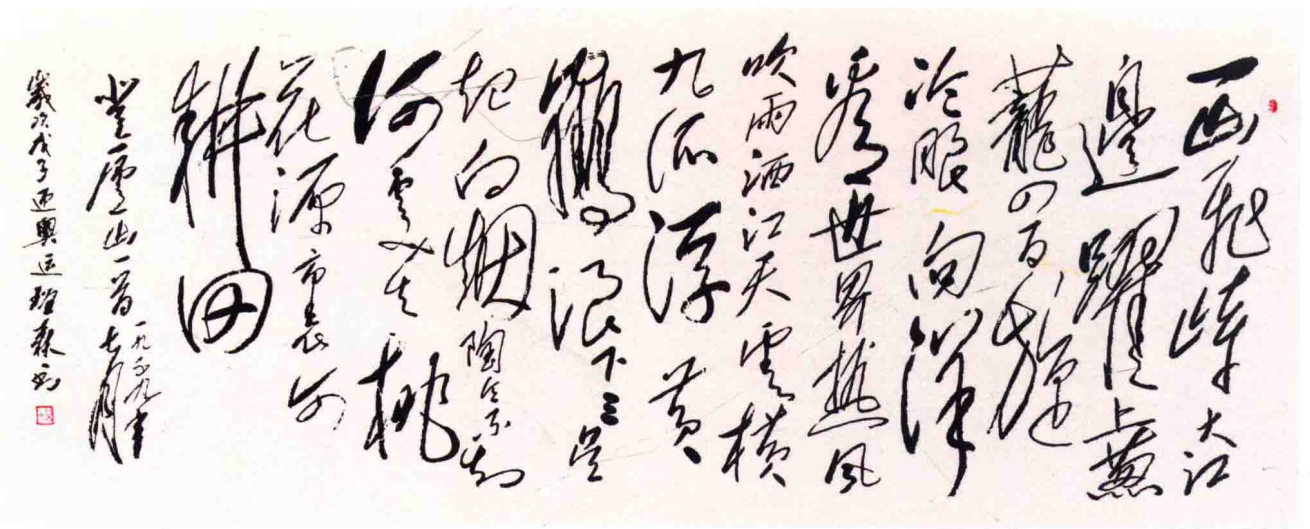 一山飛峙大江
邊躍上蔥
蘢四百旋
冷眼向洋
看世界熱風
吹雨洒江天雲横
九派浮黄
鶴浪下三吴
起白烟陶令不知
何處去桃
花源裏可
耕田
登廬山一首一九五九年七月
歲次戊子迎奥运